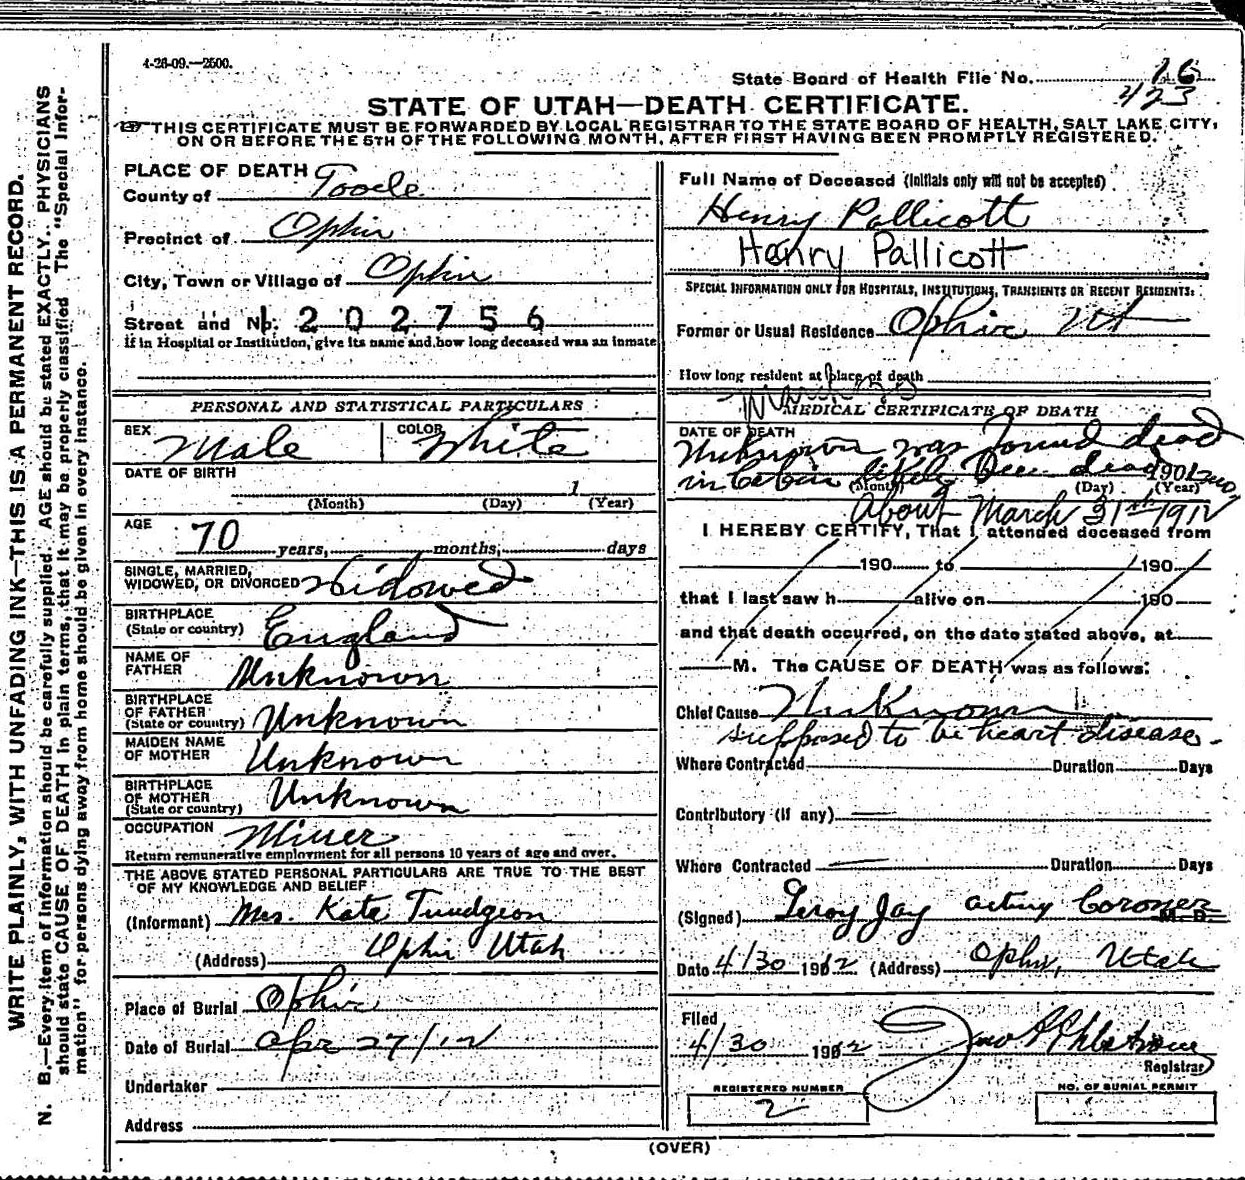 4-26-09.—2500.
State Board of Health File No. 16
423
STATE OF UTAH—DEATH CERTIFICATE.
THIS CERTIFICATE MUST BE FORWARDED BY LOCAL REGISTRAR TO THE STATE BOARD OF HEALTH, SALT LAKE CITY,
ON OR BEFORE THE 5TH OF THE FOLLOWING MONTH, AFTER FIRST HAVING BEEN PROMPTLY REGISTERED.
WRITE PLAINLY, WITH UNFADING INK—THIS IS A PERMANENT RECORD.
N. B.—Every item of information should be carefully supplied. AGE should be stated EXACTLY. PHYSICIANS
should state CAUSE OF DEATH in plain terms, that it may be properly classified. The "Special Infor-
mation" for persons dying away from home should be given in every instance.
PLACE OF DEATH
County of Tooele
Precinct of Ophir
City, Town or Village of Ophir
Street and No. 1202756
If in Hospital or Institution, give its name and how long deceased was an inmate
PERSONAL AND STATISTICAL PARTICULARS
SEX Male COLOR White
DATE OF BIRTH
1
(Month) (Day) (Year)
AGE
70 years, months, days
SINGLE, MARRIED,
WIDOWED, OR DIVORCED Widowed
BIRTHPLACE
(State or country) England
NAME OF
FATHER Unknown
BIRTHPLACE
OF FATHER
(State or country) Unknown
MAIDEN NAME
OF MOTHER Unknown
BIRTHPLACE
OF MOTHER
(State or country) Unknown
OCCUPATION Miner
Return remunerative employment for all persons 10 years of age and over.
THE ABOVE STATED PERSONAL PARTICULARS ARE TRUE TO THE BEST
OF MY KNOWLEDGE AND BELIEF
(Informant) Mrs. Kate
(Address) Ophir Utah
Place of Burial Ophir
Date of Burial Apr 27/12
Undertaker
Address
Full Name of Deceased (Initials only will not be accepted)
Henry Pallicott
Henry Pallicott
SPECIAL INFORMATION ONLY FOR HOSPITALS, INSTITUTIONS, TRANSIENTS OR RECENT RESIDENTS:
Former or Usual Residence Ophir Ut
How long resident at place of death
MEDICAL CERTIFICATE OF DEATH
DATE OF DEATH
Unknown was found dead
in Cabin likely been dead 190 1 mo,
(Month) (Day) (Year)
About March 31st 1912
I HEREBY CERTIFY, That I attended deceased from
190 to 190
that I last saw h alive on 190
and that death occurred, on the date stated above, at
M. The CAUSE OF DEATH was as follows:
Chief Cause Unknown
supposed to be heart disease.
Where Contracted Duration Days
Contributory (if any)
Where Contracted Duration Days
(Signed) Leroy Jay acting Coroner M. D.
Date 4/30 1912 (Address) Ophir, Utah
Filed
4/30 1912
Registrar
REGISTERED NUMBER
2
NO. OF BURIAL PERMIT
(OVER)